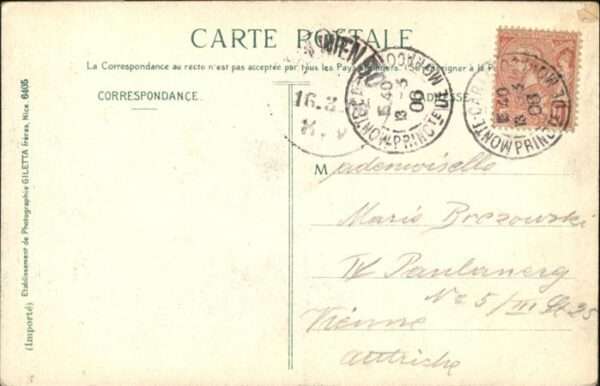 CARTE POSTALE
La Correspondance au recto n'est pas acceptée par tous les Pays
à la
CORRESPONDANCE.
ADRESSE
WIEN
16.3
MONTE-CARLO
PRINCTÉ DE MONACO
13 -3
06
MONTE-CARLO
PRINCTÉ DE MONACO
13 -3
06
Mademoiselle
Marie Brezowski
IV Paulanerg
No 5/III St 25
Vienne
Autriche
(Importé) Etablissement de Photographie GILETTA frères, Nice. 6405